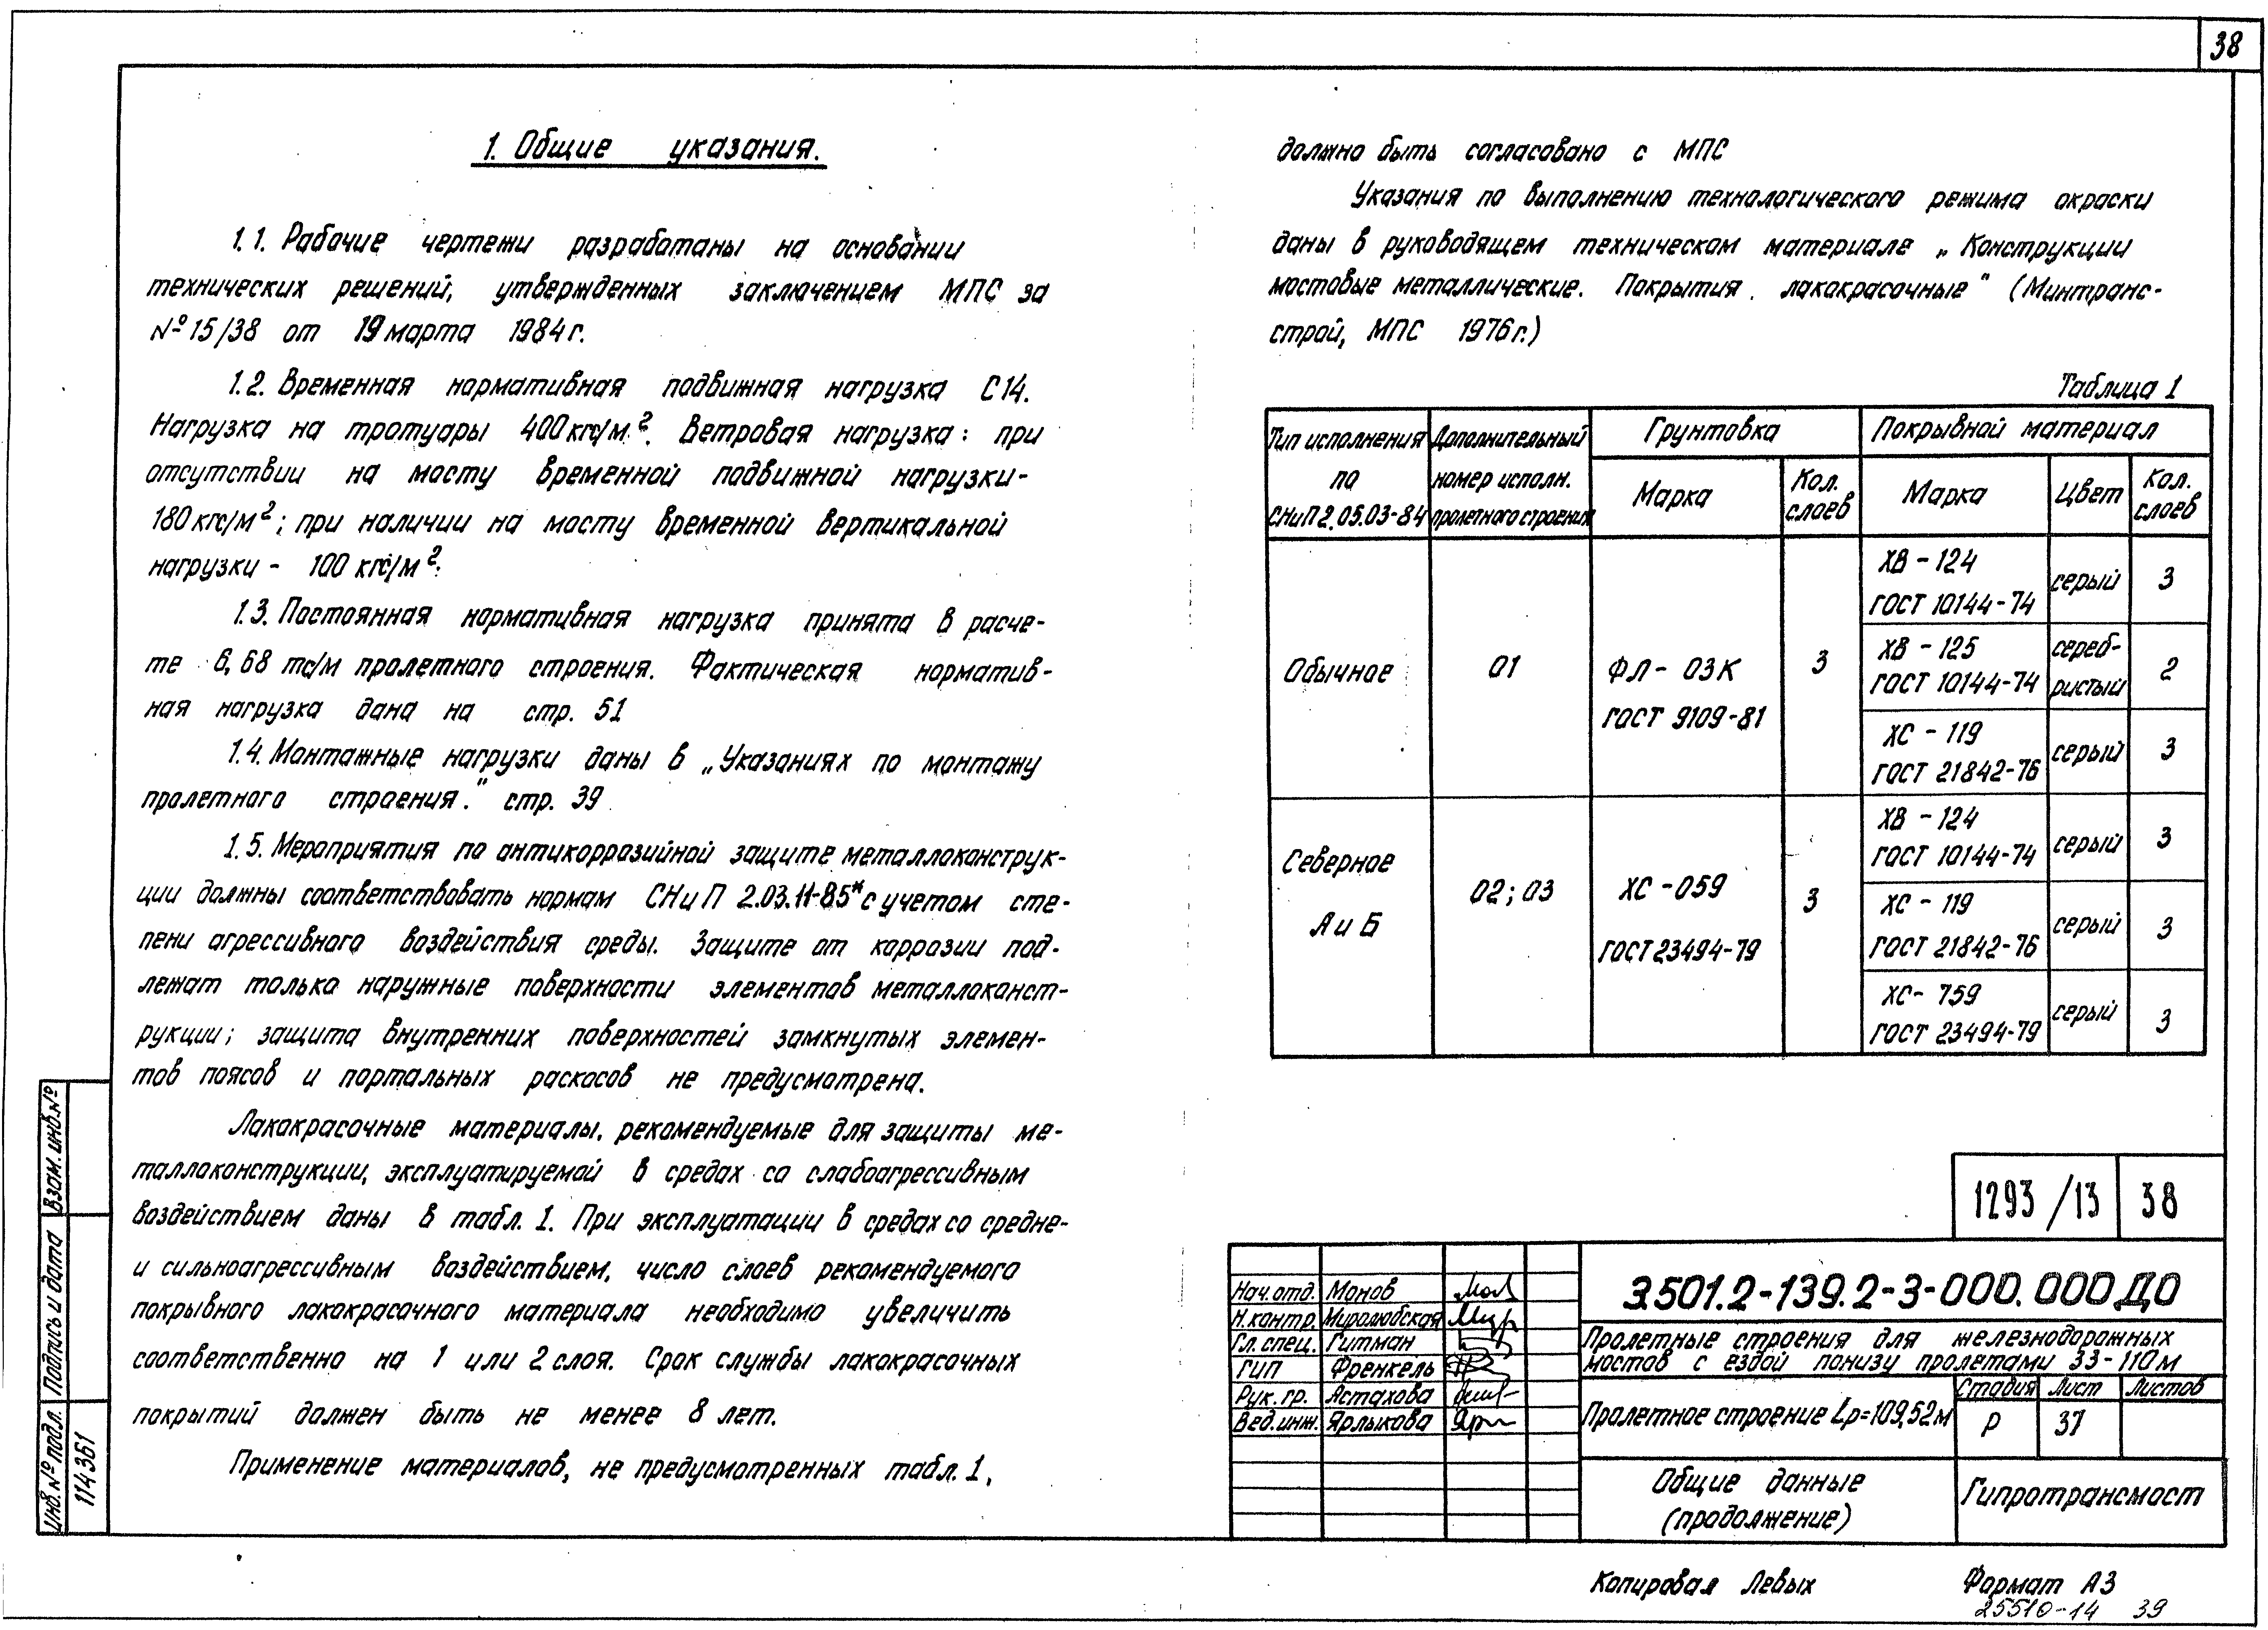 38
1. Общие указания.
1.1. Рабочие чертежи разработаны на основании
технических решений, утвержденных заключением МПС за
№ 15/38 от 19 марта 1984 г.
1.2. Временная нормативная подвижная нагрузка С14.
Нагрузка на тротуары 400 кгс/м². Ветровая нагрузка: при
отсутствии на мосту временной подвижной нагрузки -
180 кгс/м²; при наличии на мосту временной вертикальной
нагрузки - 100 кгс/м².
1.3. Постоянная нормативная нагрузка принята в расче-
те 6,68 тс/м пролетного строения. Фактическая норматив-
ная нагрузка дана на стр. 51
1.4. Монтажные нагрузки даны в „Указаниях по монтажу
пролетного строения." стр. 39
1.5. Мероприятия по антикоррозийной защите металлоконструк-
ции должны соответствовать нормам СНиП 2.03.11-85* с учетом сте-
пени агрессивного воздействия среды. Защите от коррозии под-
лежат только наружные поверхности элементов металлоконст-
рукции; защита внутренних поверхностей замкнутых элемен-
тов поясов и портальных раскосов не предусмотрена.
Лакокрасочные материалы, рекомендуемые для защиты ме-
таллоконструкции, эксплуатируемой в средах со слабоагрессивным
воздействием даны в табл. 1. При эксплуатации в средах со средне-
и сильноагрессивным воздействием, число слоев рекомендуемого
покрывного лакокрасочного материала необходимо увеличить
соответственно на 1 или 2 слоя. Срок службы лакокрасочных
покрытий должен быть не менее 8 лет.
Применение материалов, не предусмотренных табл. 1,
должно быть согласовано с МПС
Указания по выполнению технологического режима окраски
даны в руководящем техническом материале „Конструкции
мостовые металлические. Покрытия лакокрасочные" (Минтранс-
строй, МПС 1976 г.)
Таблица 1
Тип исполнения по СНиП 2.05.03-84
Дополнительный номер исполн. пролетного строения
Грунтовка
Покрывной материал
Марка
Кол. слоев
Марка
Цвет
Кол. слоев
Обычное
01
ФЛ - 03К
ГОСТ 9109-81
3
ХВ - 124
ГОСТ 10144-74
серый
3
ХВ - 125
ГОСТ 10144-74
сереб-
ристый
2
ХС - 119
ГОСТ 21842-76
серый
3
Северное
А и Б
02; 03
ХС - 059
ГОСТ 23494-79
3
ХВ - 124
ГОСТ 10144-74
серый
3
ХС - 119
ГОСТ 21842-76
серый
3
ХС - 759
ГОСТ 23494-79
серый
3
1293/13 38
3.501.2-139.2-3-000.000 ДО
Нач. отд. Монов
Н. контр. Миролюбская
Гл. спец. Гитман
ГИП Френкель
Рук. гр. Астахова
Вед. инж. Ярлыкова
Пролетные строения для железнодорожных
мостов с ездой понизу пролетами 33-110 м
Пролетное строение Lр=109,52м
Стадия Лист Листов
Р 37
Общие данные
(продолжение)
Гипротрансмост
Копировал Левых
Формат А3
25510-14 39
Взам. инв. №
Подпись и дата
Инв. № подл.
114361